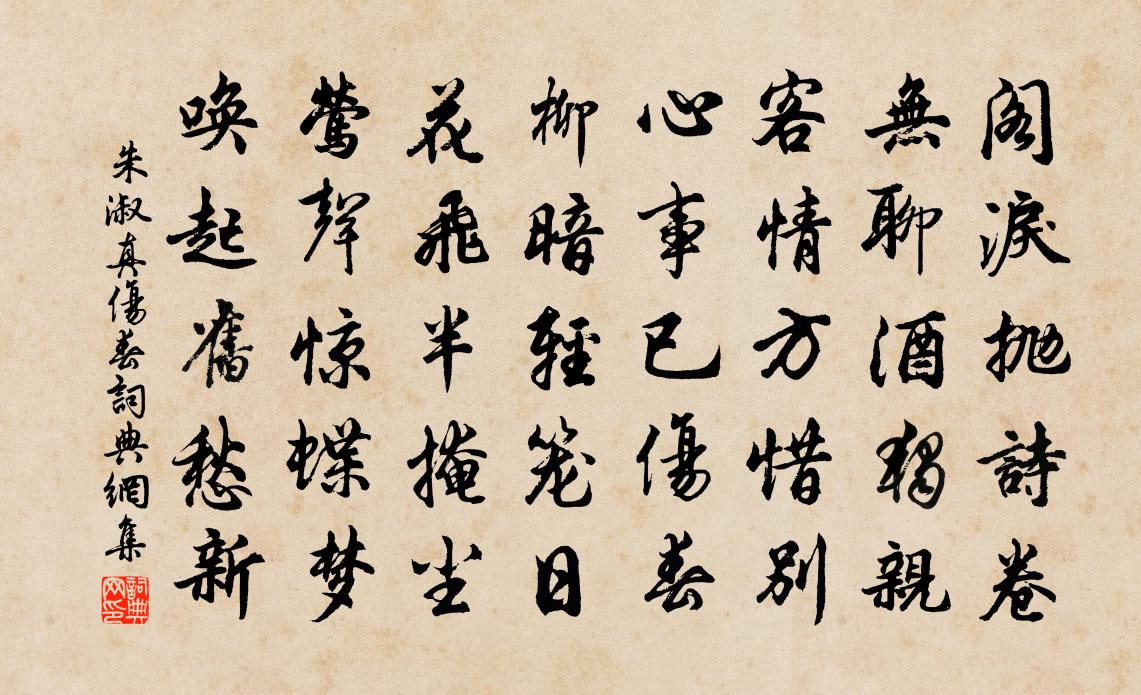 閣淚拋詩卷
無聊酒獨親
客情方惜別
心事已傷春
柳暗輕笼日
花飛半掩尘
鶯聲惊蝶梦
喚起舊愁新
朱淑真傷春詞典網集
詞典网印